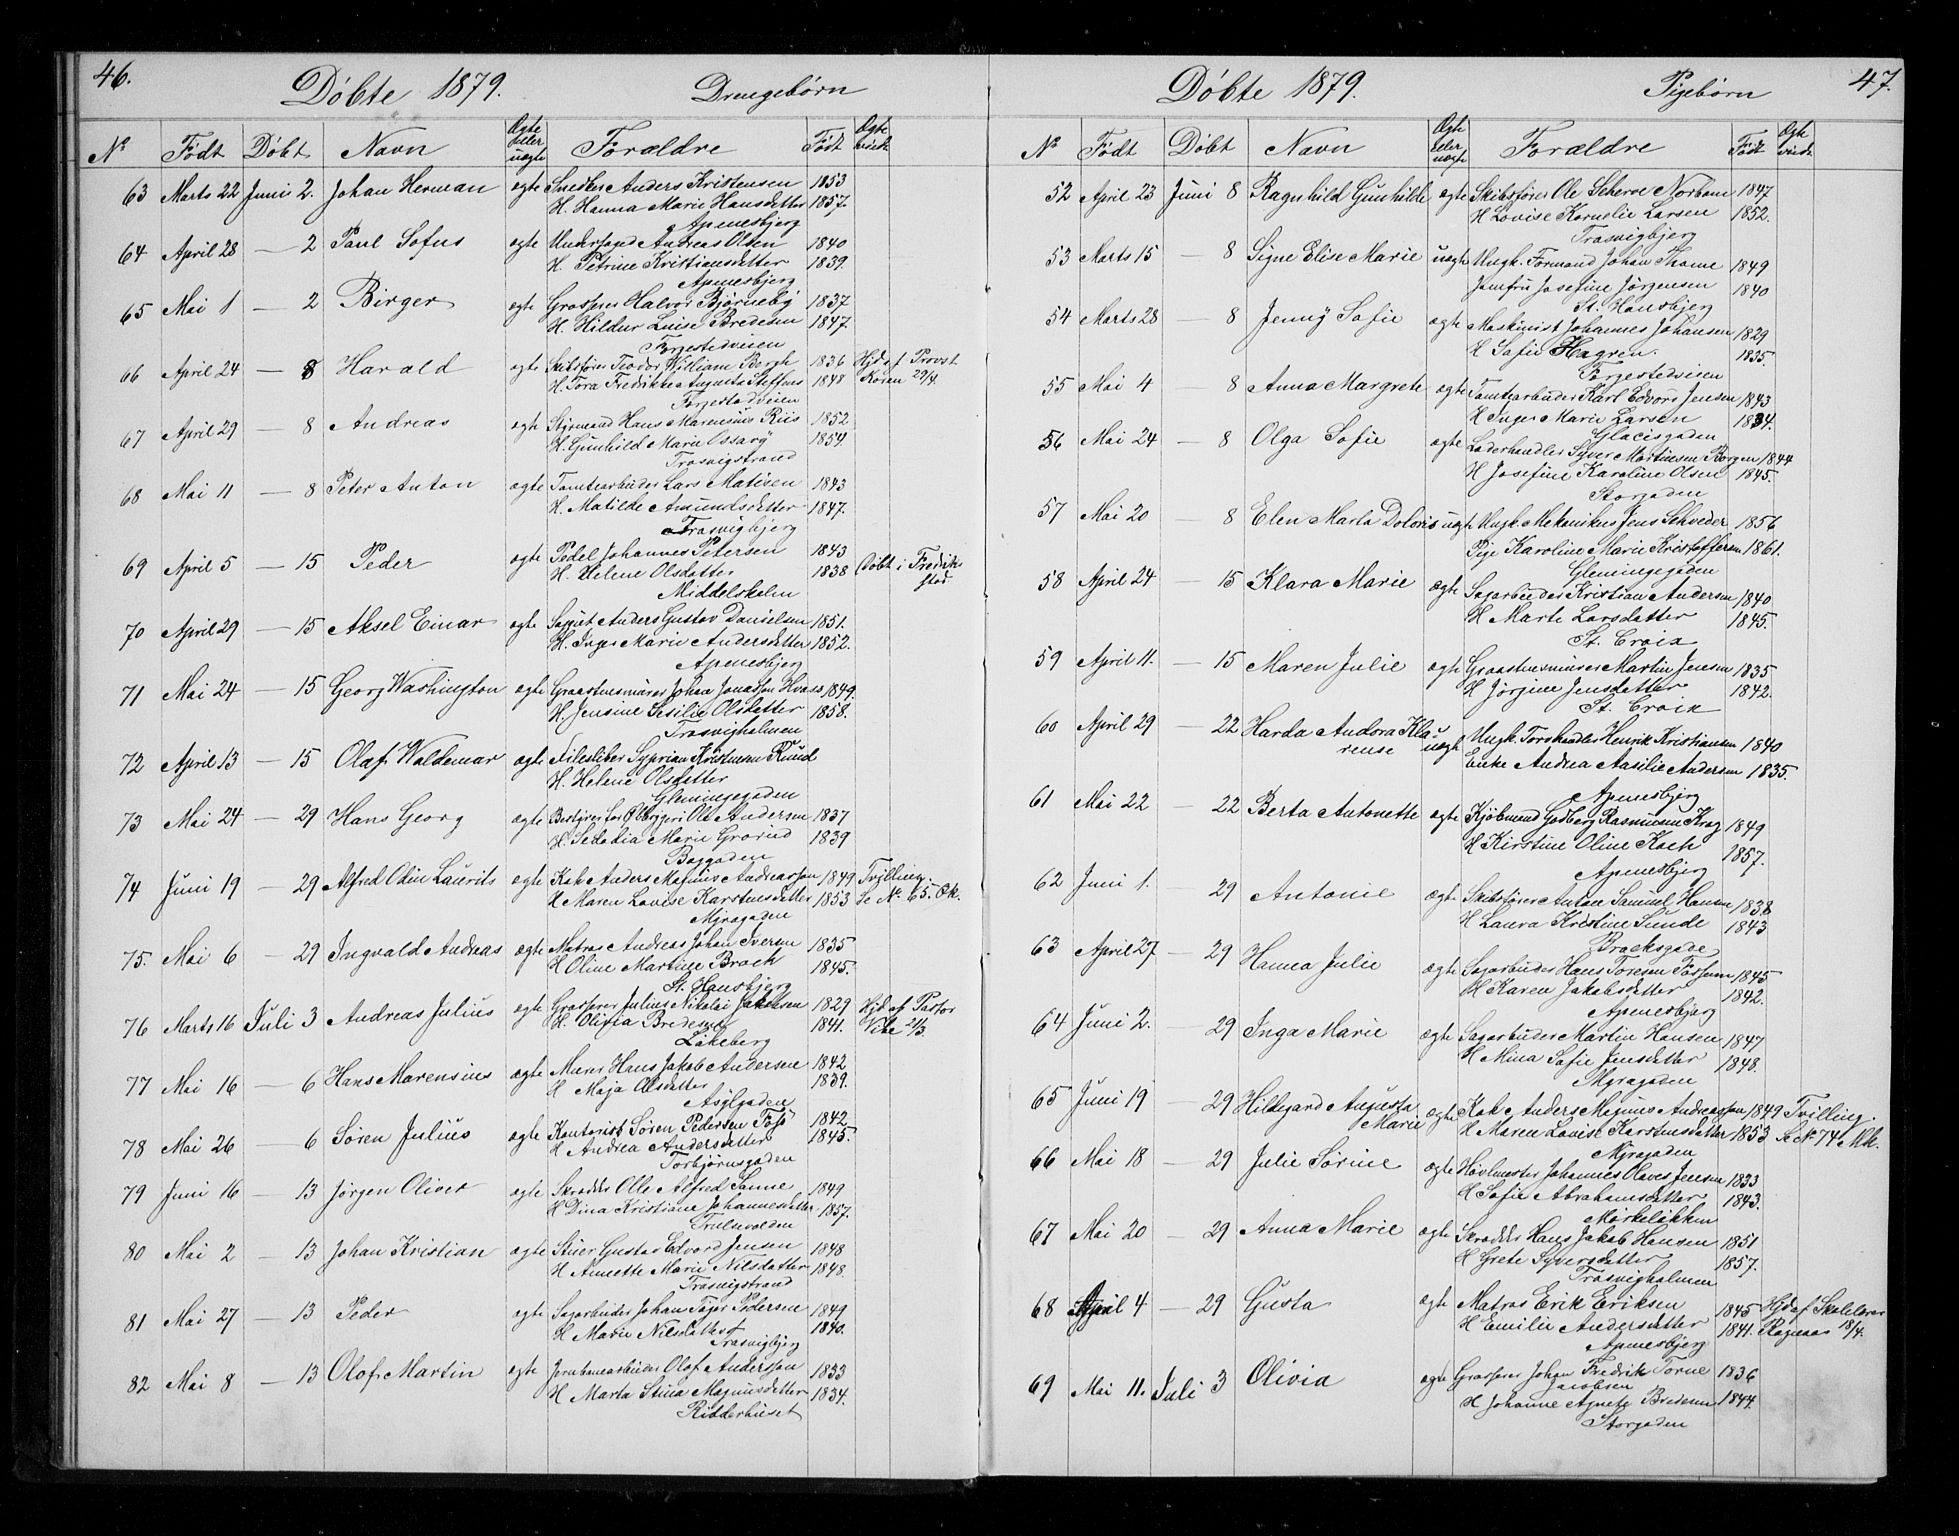 46.
Döbte 1879. Drengebörn
No Födt Döbt Navn Ægte eller uægte Forældre Födt
63 Marts 22 Juni 2. Johan Herman ægte Snedker Anders Kristensen 1853
H. Hanna Marie Hansdatter 1857.
Apenesbjerg
64 April 28 — 2 Paul Sofus ægte Andreas Olsen 1840
H. Petrine Kristiansdatter 1839.
Apenesbjerg
65 Mai 1 — 2 Birger ægte Grosserer Halvor Bjørneby 1837
H. Hildur Luise Bredesen 1847.
Torgestedveien
66 April 24 — 8 Harald ægte Skibsfører Teodor William Bergh 1836 Hjd af Provst
H. Tora Fredrikke Augusta Steffens 1848 Koren 29/4.
Torgestedveien
67 April 29 — 8 Andreas ægte Styrmand Hans Marensius Riis 1852
H. Gunhild Marie 1854
Trosvigstrand
68 Mai 11 — 8 Peter Anton ægte Tomtearbeider Lars Matisen 1843
H. Matilde Amundsdatter 1847.
Trosvigbjerg
69 April 5 — 15 Peder ægte Pedel Johannes Petersen 1843
H. Helene Olsdatter 1838 Döbt i Fredrik
stad
Middelskolen
70 April 29 — 15 Aksel Einar ægte Anders Gustav Danielsen 1851.
H. Inger Marie Andersdatter 1852.
Apenesbjerg
71 Mai 24 — 15 Georg Washington ægte Graastensmurer Johan Jonassen Hvass 1849.
H. Jensine Sesilie Olsdatter 1858.
Trosvigholmen
72 April 13 — 15 Olaf Waldemar ægte Filesliber Syprian Kristensen Rund
H. Helene Olsdatter
Glemmegegaden
73 Mai 24 — 29 Hans Georg ægte Bestyrer for Ølbryggeri Ole Andersen 1837
H. Marie Grorud 1839
Bøggaden
74 Juni 19 — 29 Alfred Odin Laurits ægte Kok Anders Magnus Andreassen 1849 Tvilling.
H Maren Lovise Karstensdatter 1853 Se No 65. Qk.
Myragaden
75. Mai 6 — 29 Ingvald Andreas ægte Matros Andreas Johan Iversen 1835
H Oline Martine Brock 1845.
St. Hansbjerg
76 Marts 16 Juli 3 Andreas Julius ægte Grosserer Julius Nikolai Jakobsen 1829 Hjd af Pastor
H. Olivia Bredesen 1841. Vibe 21/3.
Løkeberg
77 Mai 16 — 6 Hans Marensius ægte Murer Hans Jakob Andersen 1842
H Maja Olsdatter 1839.
Asylgaden
78 Mai 26 — 6 Søren Julius ægte Kontorist Søren Pedersen Tøsø 1842
H Andrea Andersdatter 1845.
Torbjørnsgaden
79 Juni 16 — 13 Jørgen Oliver ægte Skrædder Olle Alfred Sanne 1849
H Dina Kristiane Johannesdatter 1857.
80 Mai 2 — 13 Johan Kristian ægte Stuer Gustav Edvard Jensen 1848
H Annette Marie Nilsdatter 1848.
Trosvigstrand
81 Mai 27 — 13 Peder ægte Sagarbeider Johan Petersen 1849
H Marie Nilsdatter 1840.
Trosvigbjerg
82 Mai 8 — 13 Olof Martin ægte Jernbanearbeider Olof Andersson 1833
H Marta Stina Magnusdatter 1834.
Ridderhuset
47.
Döbte 1879. Pigebörn
No Födt Döbt Navn Ægte eller uægte Forældre Födt
52 April 23 Juni 8 Ragnhild Gunhilde ægte Skibsfører Ole Scheroe Norbom 1847
H Lovise Kornelie Larsen 1852.
Trosvigbjerg
53 Marts 15 — 8 Signe Elise Marie uægte Ungk. Formand Johan Thome 1849
Jomfru Josefine Jørgensen 1840
St. Hansbjerg
54 Marts 28 — 8 Jenny Sofie ægte Maskinist Johannes Johansen 1829
H Sofie Hagren. 1835.
Torgestedveien
55 Mai 4 — 8 Anna Margrete ægte Tomtearbeider Karl Edvard Jensen 1843
H Inger Marie Larsen 1834.
Glacisgaden
56 Mai 24 — 8 Olga Sofie ægte Læderhandler Syver Martinsen Borgen 1844
H Josefine Karoline Olsen 1845.
Storgaden
57 Mai 20 8 Elen Marta Doloris uægte Ungk. Mekanikus Jens Schveder 1856
Pige Karoline Marie Kristoffersen 1861.
Glemmegegaden
58 April 24 — 15 Klara Marie ægte Sagarbeider Kristian Andersen 1840
H Marte Larsdatter 1845.
St. Croix
59 April 11. — 15 Maren Julie ægte Graastensmurer Martin Jensen 1835
H Jörgine Jensdatter 1842.
St. Croix
60 April 29 — 22 Harda Andora Kla-
rense uægte Ungk. Torvhandler Henrik Kristiansen 1840
Enke Andrea Aasilie Andersen 1835.
Apenesbjerg
61 Mai 22 — 22 Berta Antonette ægte Kjøbmand Godberg Rasmussen Krog 1849
H Kirstine Oline Koch 1857.
Apenesbjerg
62 Juni 1. 29 Antonie ægte Skibsfører Anton Samuel Hansen 1838
H Laura Kristine Sunde 1843
Brocksgade
63 April 27 — 29 Hanna Julie ægte Sagarbeider Hans Toresen Fossum 1845
H Karen Jakobsdatter 1842.
Apenesbjerg
64 Juni 2. — 29 Inga Marie ægte Sagarbeider Martin Hansen 1847
H Mina Sofie Jensdatter 1848.
Myragaden
65 Juni 19 — 29 Hildegard Augusta
Marie ægte Kok Anders Magnus Andreassen 1849 Tvilling.
H Maren Lovise Karstensdatter 1853 se No 74 Mk.
Myragaden
66 Mai 18 — 29 Julie Sørine ægte Høvlmester Johannes Olaves Jensen 1833
H Sofie Abrahamsdatter 1843.
Mørkeløkken
67 Mai 20 — 29 Anna Marie ægte Skrædder Hans Jakob Hansen 1851
H Grete Syversdatter 1857.
Trosvigholmen
68 April 4 — 29 Gusta ægte Matros Erik Eriksen 1845 Hjd af Skolelærer
H Emilie Andersdatter 1841. 18/4.
Apenesbjerg
69 Mai 11. Juli 3 Olivia ægte Grosserer Johan Fredrik Torne 1836
Jacobsen
H Johanne Agnete Bredesen 1844.
Storgaden